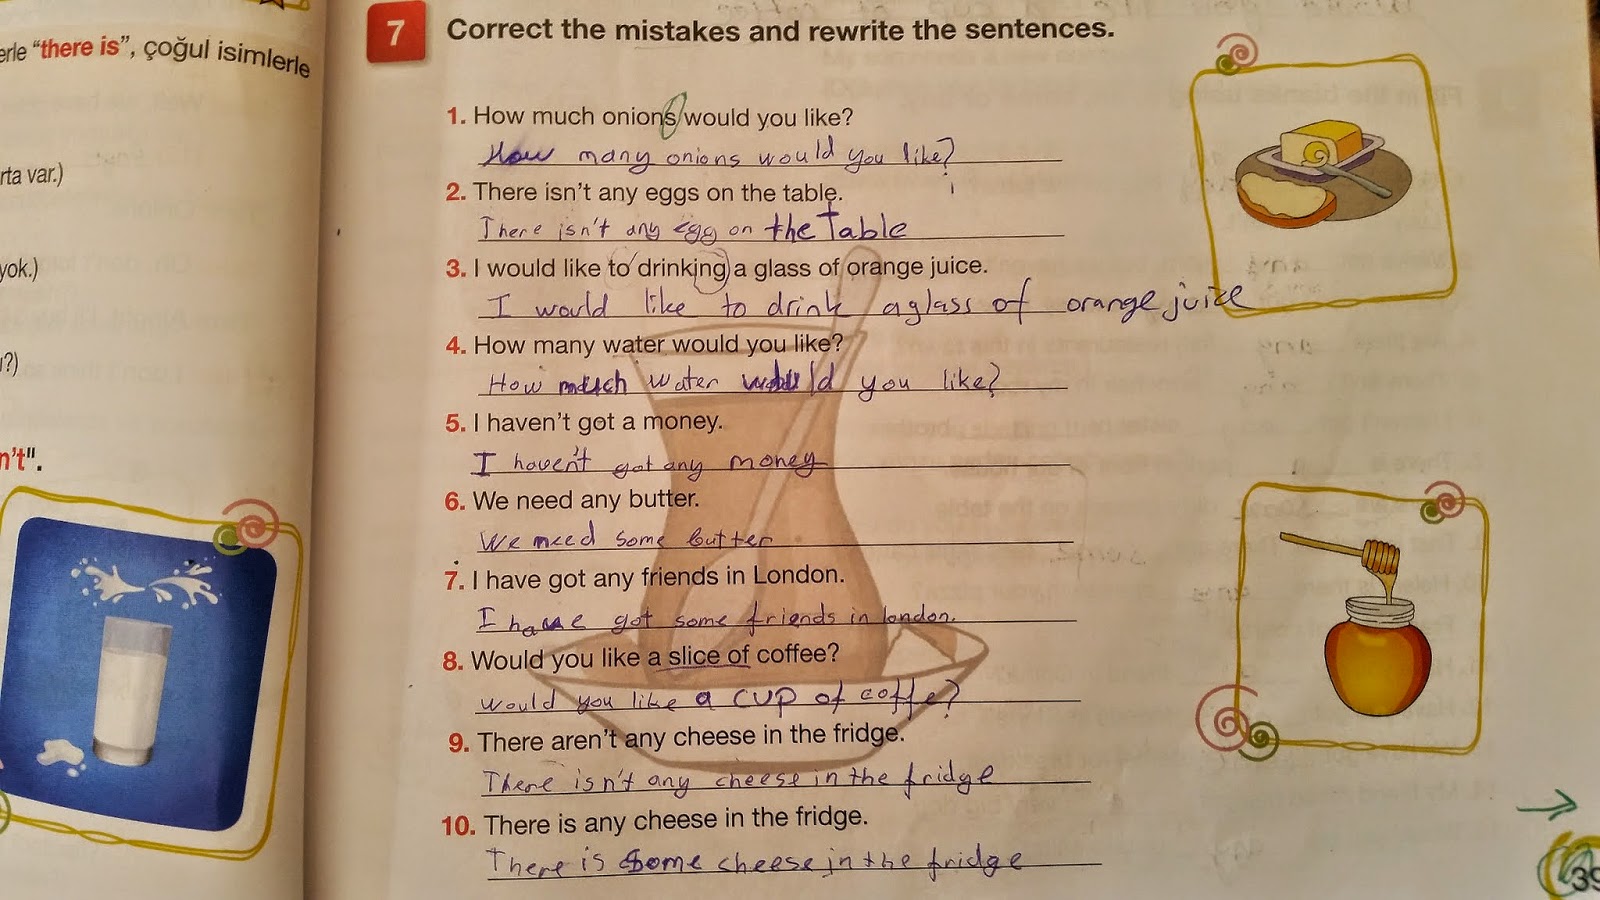 erle "there is", çoğul isimlerle
rta var.)
yok.)
ı?)
n't".
7 Correct the mistakes and rewrite the sentences.
1. How much onions would you like?
How many onions would you like?
2. There isn't any eggs on the table.
There isn't any egg on the Table
3. I would like to drinking a glass of orange juice.
I would like to drink a glass of orange juice
4. How many water would you like?
How much water would you like?
5. I haven't got a money.
I haven't got any money
6. We need any butter.
We need some butter
7. I have got any friends in London.
I have got some friends in london.
8. Would you like a slice of coffee?
would you like a cup of coffe?
9. There aren't any cheese in the fridge.
There isn't any cheese in the fridge
10. There is any cheese in the fridge.
There is some cheese in the fridge
39